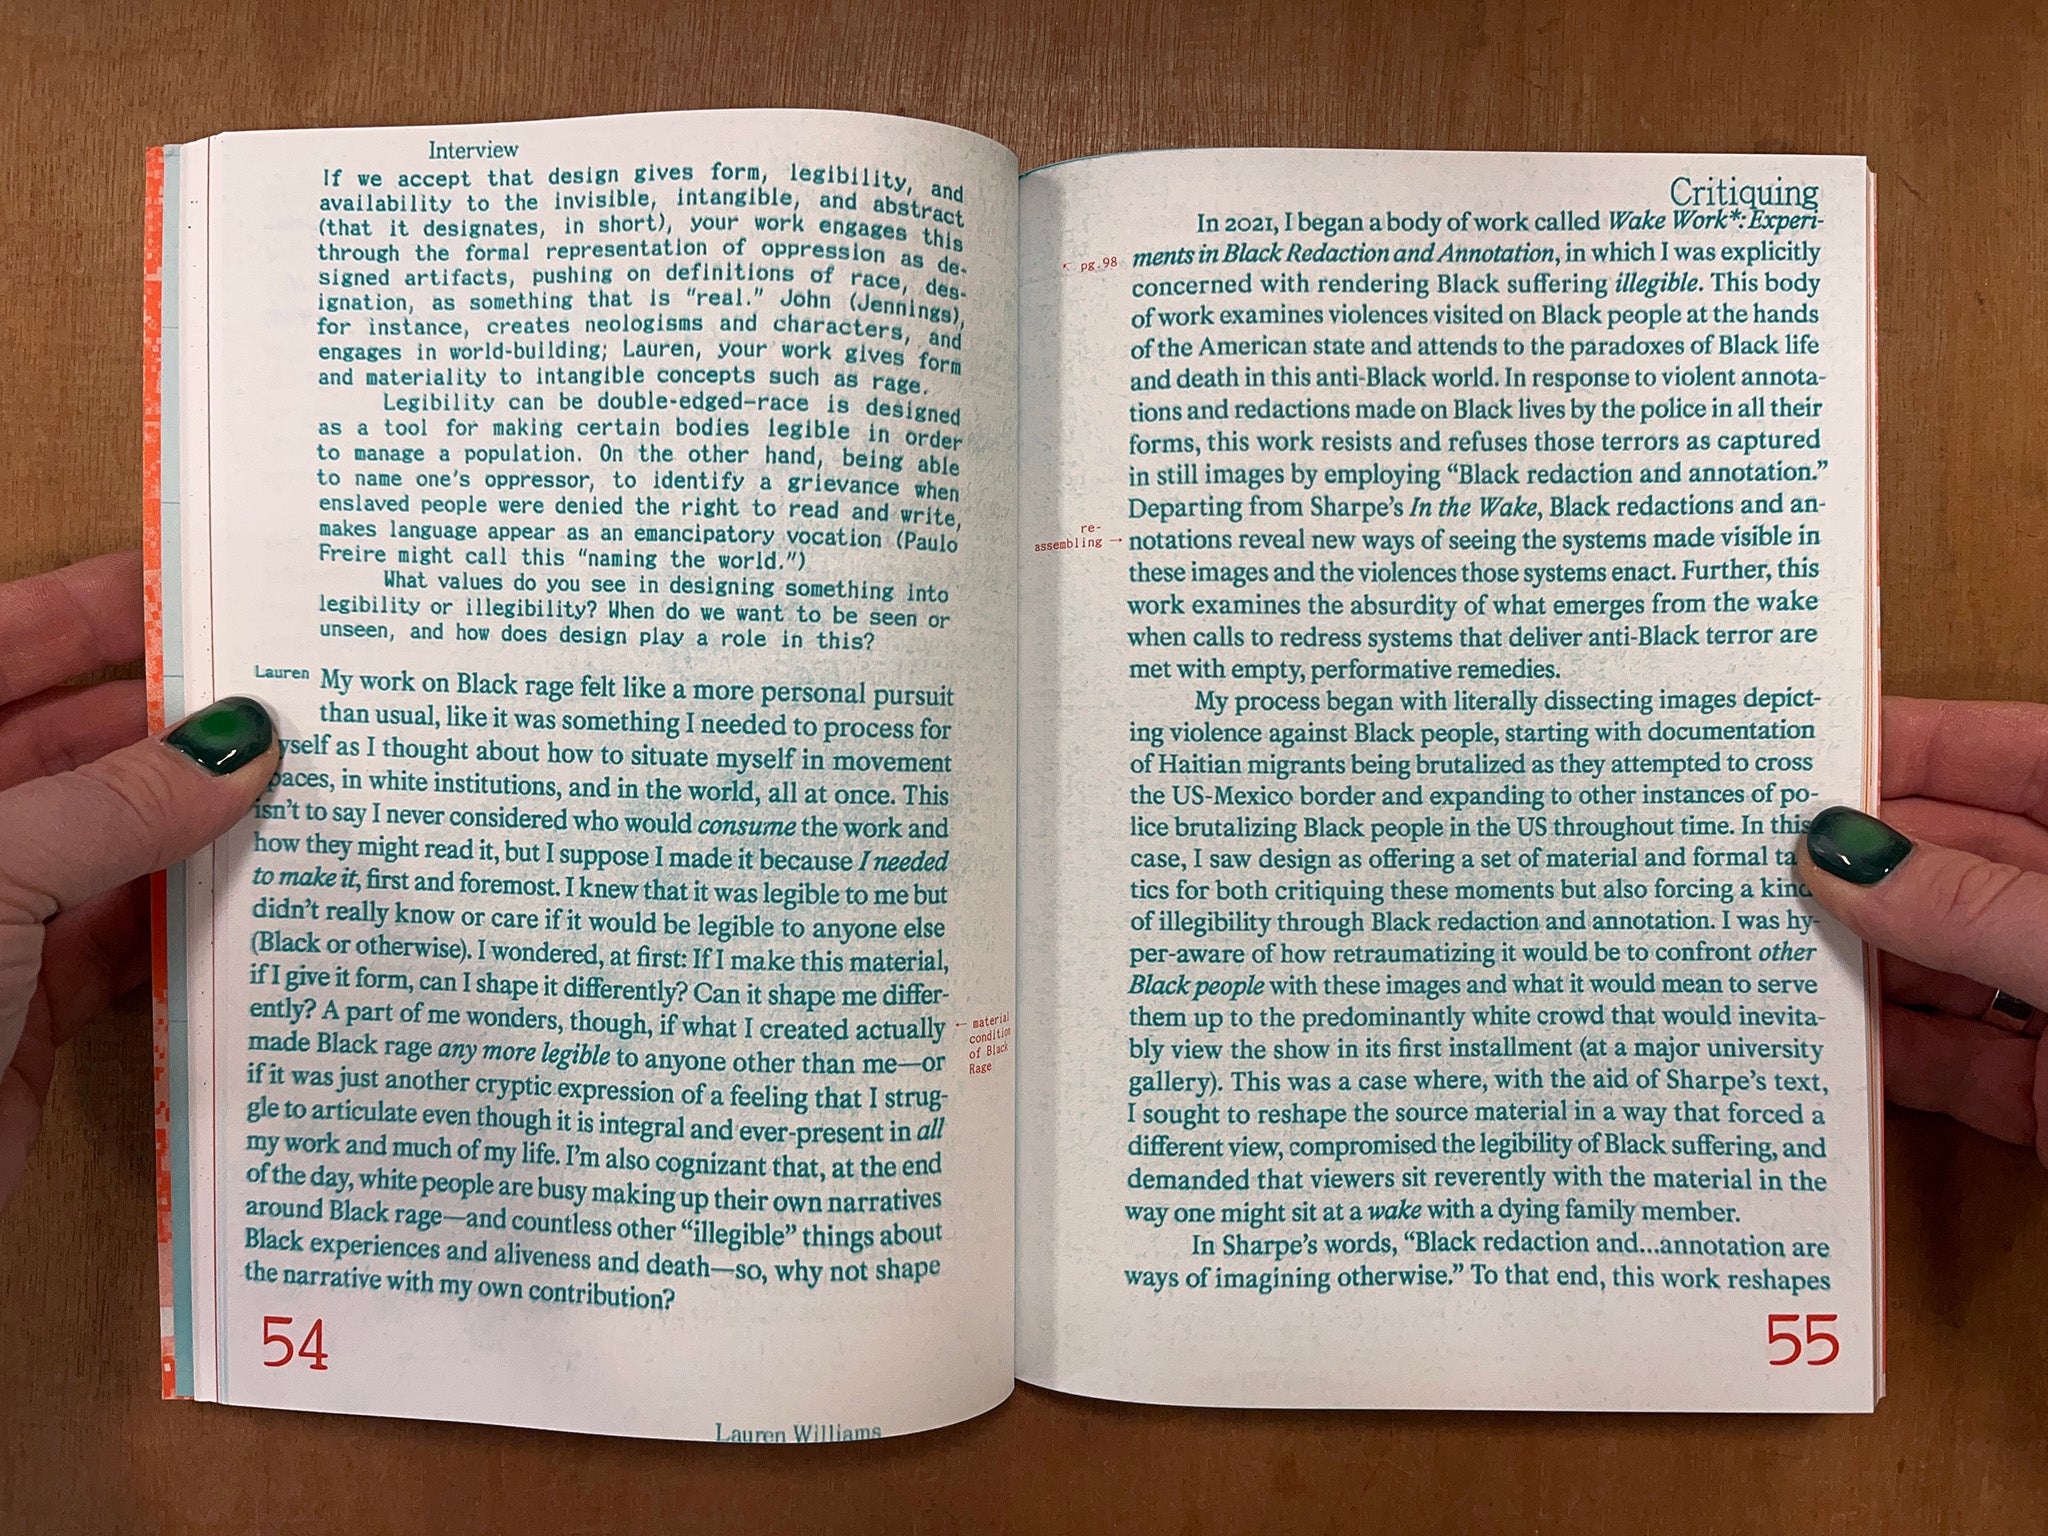 Interview
If we accept that design gives form, legibility, and
availability to the invisible, intangible, and abstract
(that it designates, in short), your work engages this
through the formal representation of oppression as de-
signed artifacts, pushing on definitions of race, des-
ignation, as something that is "real." John (Jennings),
for instance, creates neologisms and characters, and
engages in world-building; Lauren, your work gives form
and materiality to intangible concepts such as rage.
Legibility can be double-edged—race is designed
as a tool for making certain bodies legible in order
to manage a population. On the other hand, being able
to name one's oppressor, to identify a grievance when
enslaved people were denied the right to read and write,
makes language appear as an emancipatory vocation (Paulo
Freire might call this "naming the world.")
What values do you see in designing something into
legibility or illegibility? When do we want to be seen or
unseen, and how does design play a role in this?
Lauren My work on Black rage felt like a more personal pursuit
than usual, like it was something I needed to process for
yself as I thought about how to situate myself in movement
paces, in white institutions, and in the world, all at once. This
isn't to say I never considered who would consume the work and
how they might read it, but I suppose I made it because I needed
to make it, first and foremost. I knew that it was legible to me but
didn't really know or care if it would be legible to anyone else
(Black or otherwise). I wondered, at first: If I make this material,
if I give it form, can I shape it differently? Can it shape me differ-
ently? A part of me wonders, though, if what I created actually
made Black rage any more legible to anyone other than me—or
if it was just another cryptic expression of a feeling that I strug-
gle to articulate even though it is integral and ever-present in all
my work and much of my life. I'm also cognizant that, at the end
of the day, white people are busy making up their own narratives
around Black rage—and countless other "illegible" things about
Black experiences and aliveness and death—so, why not shape
the narrative with my own contribution?
← material
condition
of Black
Rage
54
Lauren Williams
Critiquing
In 2021, I began a body of work called Wake Work*: Experi-
ments in Black Redaction and Annotation, in which I was explicitly
concerned with rendering Black suffering illegible. This body
of work examines violences visited on Black people at the hands
of the American state and attends to the paradoxes of Black life
and death in this anti-Black world. In response to violent annota-
tions and redactions made on Black lives by the police in all their
forms, this work resists and refuses those terrors as captured
in still images by employing "Black redaction and annotation."
Departing from Sharpe's In the Wake, Black redactions and an-
notations reveal new ways of seeing the systems made visible in
these images and the violences those systems enact. Further, this
work examines the absurdity of what emerges from the wake
when calls to redress systems that deliver anti-Black terror are
met with empty, performative remedies.
My process began with literally dissecting images depict-
ing violence against Black people, starting with documentation
of Haitian migrants being brutalized as they attempted to cross
the US-Mexico border and expanding to other instances of po-
lice brutalizing Black people in the US throughout time. In this
case, I saw design as offering a set of material and formal ta
tics for both critiquing these moments but also forcing a kind
of illegibility through Black redaction and annotation. I was hy-
per-aware of how retraumatizing it would be to confront other
Black people with these images and what it would mean to serve
them up to the predominantly white crowd that would inevita-
bly view the show in its first installment (at a major university
gallery). This was a case where, with the aid of Sharpe's text,
I sought to reshape the source material in a way that forced a
different view, compromised the legibility of Black suffering, and
demanded that viewers sit reverently with the material in the
way one might sit at a wake with a dying family member.
In Sharpe's words, "Black redaction and...annotation are
ways of imagining otherwise." To that end, this work reshapes
↖ pg.98
re-
assembling →
55